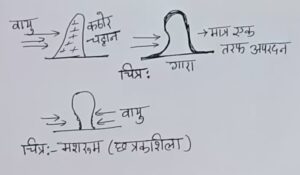 वायु
कठोर
चट्टान
→ मात्र एक
तरफ अपरदन
चित्र: गारा
वायु
चित्र:- मशरूम (छत्रकशिला)